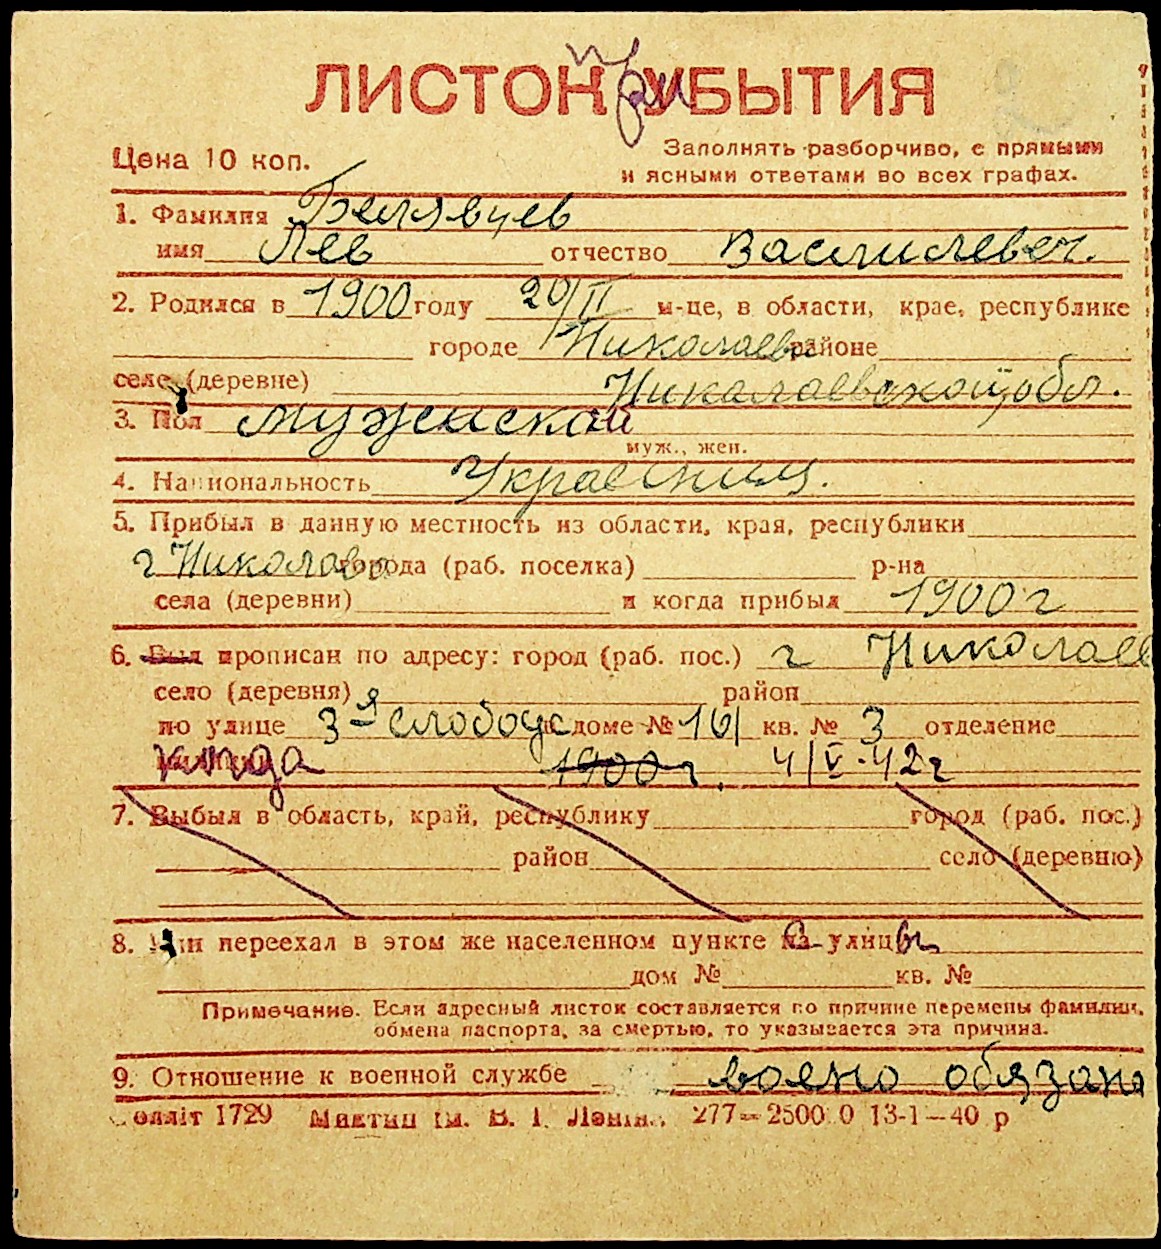 ЛИСТОК при УБЫТИЯ
Цена 10 коп.
Заполнять разборчиво, с прямыми
и ясными ответами во всех графах.
1. Фамилия Белявцев
имя Лев отчество Василевич.
2. Родился в 1900 году 20/II м-це, в области, крае, республике
городе Николаев районе
селе (деревне) Николаевской, обл.
3. Пол мужской
муж., жен.
4. Национальность Украенец.
5. Прибыл в данную местность из области, края, республики
г Николаева города (раб. поселка) р-на
села (деревни) и когда прибыл 1900 г
6. Был прописан по адресу: город (раб. пос.) г Николаев
село (деревня) район
по улице 3я слободс доме № 161 кв. № 3 отделение
когда 1900 г. 4/V-42 г
7. Выбыл в область, край, республику город (раб. пос.)
район село (деревню)
8. Или переехал в этом же населенном пункте с улицы
дом № кв. №
Примечание. Если адресный листок составляется по причине перемены фамилии,
обмена паспорта, за смертью, то указывается эта причина.
9. Отношение к военной службе воено обязан
1729 ім. В. І. Леніна. 277—2500 0 13-1—40 р